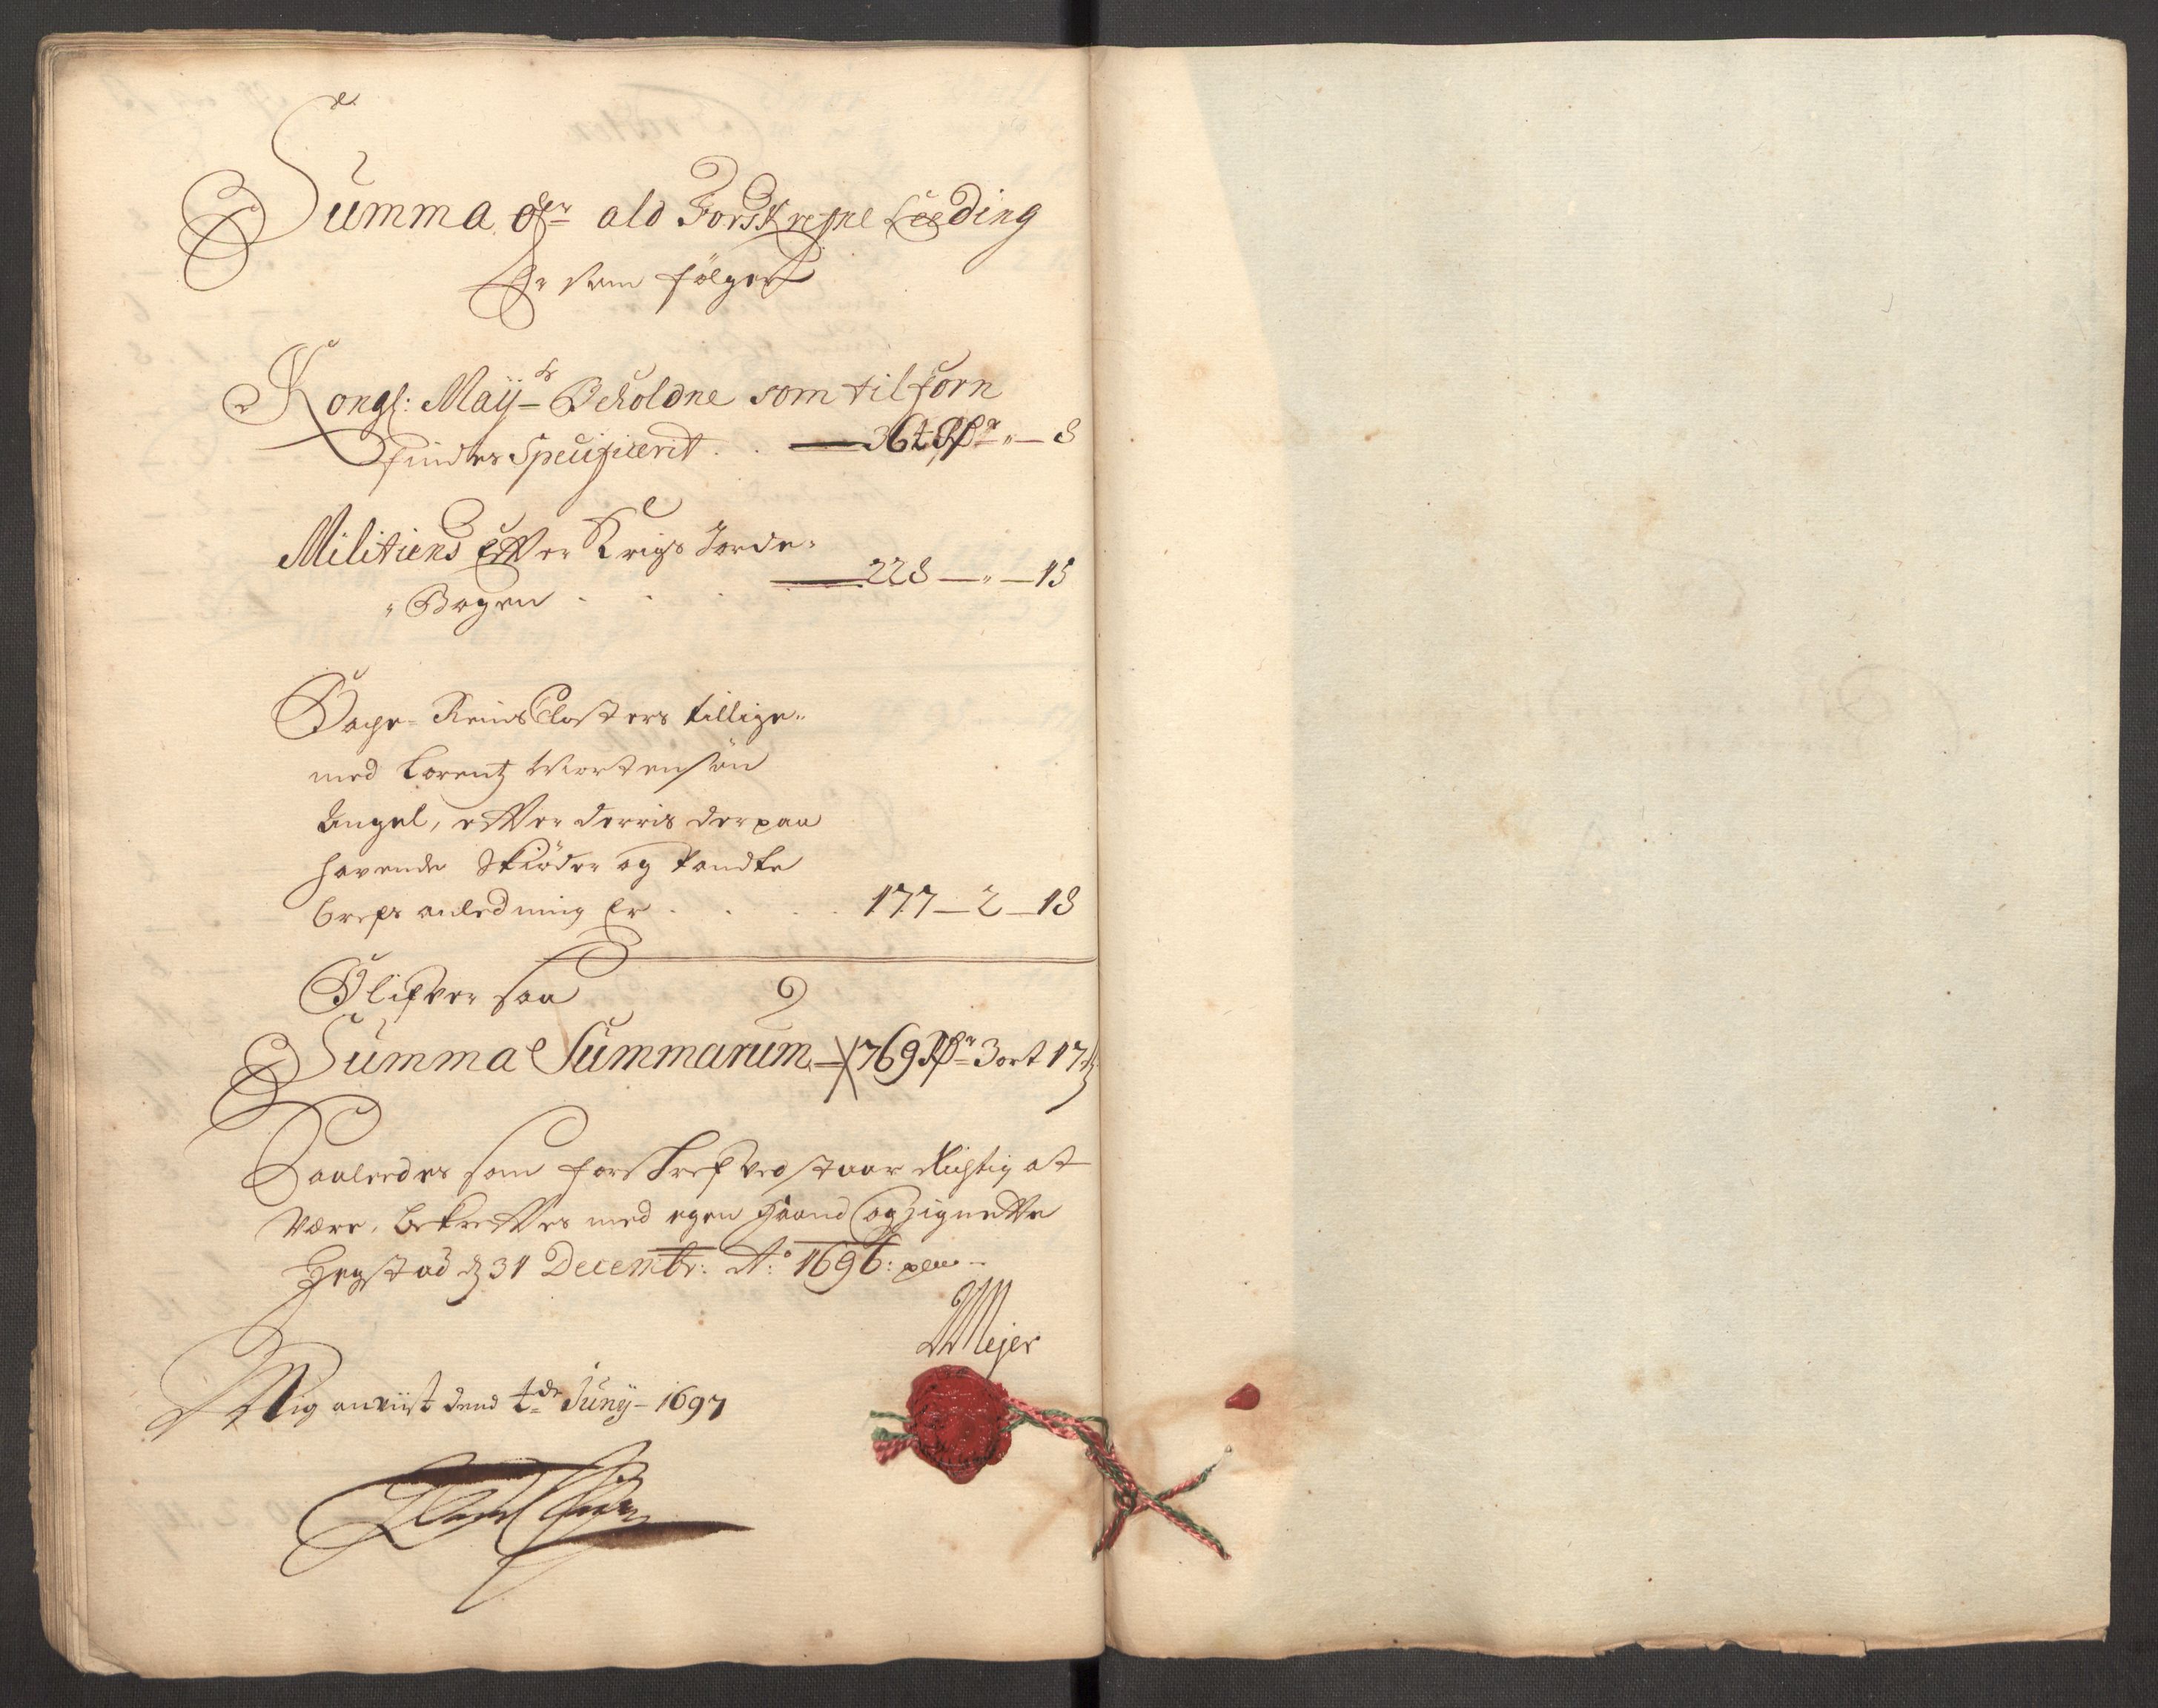 Summa ofr ald Forskrefne Leeding
Er som følger
Kongl: Maÿ- ts Beholdne som tilforn
findes Specificerit . . — 364 Rdr „ — 8
Militiens Efter Krigs Jorde-
„ Bogen . . . — 228 — „ — 15
Bage- Reins Closters tillige-
med Lorentz Mortensøn
Angel, efter derris derpaa
havende Skiøder og Pandte
brefs anledning Er . . . 177 — 2 — 18
Blifver saa
Summa Summarum — 769 Rdr 3 ort 17 ß
Saaleedes som forskrefved staar Rigtig at
være, bekreftes med egen Haand og zignette
Hegstad d 31 Decembr: Ao: 1696:
Mejer
Mig anviist dend t de Junÿ - 1697